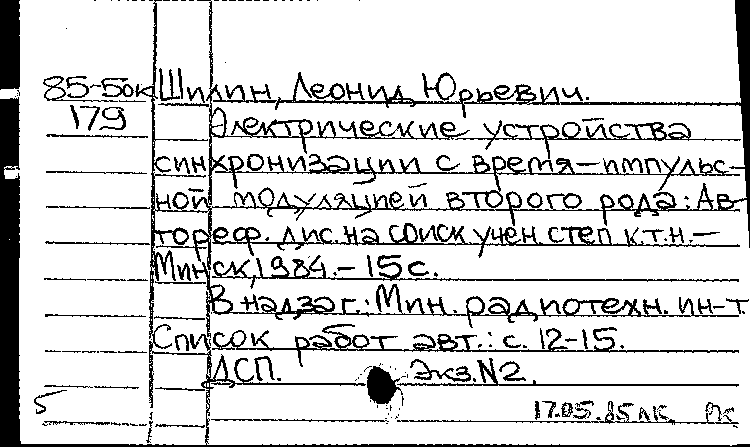 85-5ок Шилин, Леонид Юрьевич.
179 Электрические устройства
синхронизации с время-импульс-
ной модуляцией второго рода: Ав-
тореф. дис. на соиск учен. степ к.т.н.-
Минск, 1984.-15с.
В надзаг.: Мин. радиотехн. ин-т
Список работ авт.: с. 12-15.
ДСП. Экз.N2.
5 17.05.85